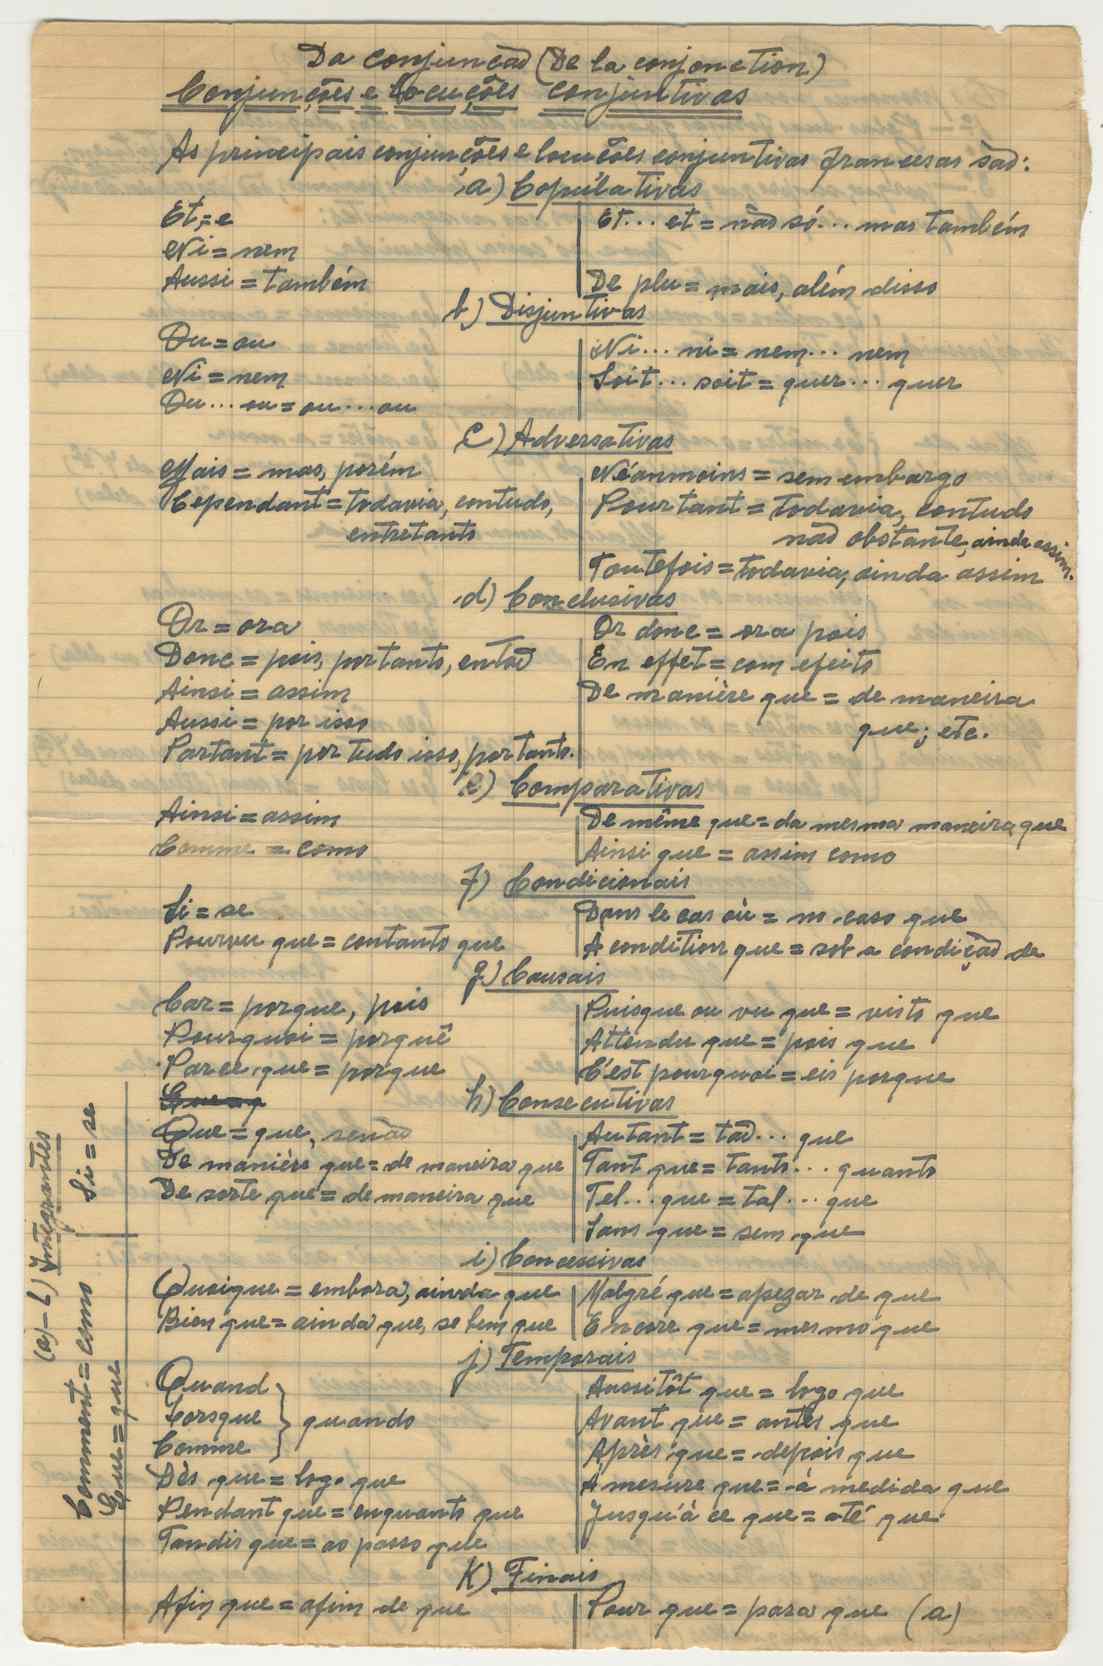 Da conjunção (De la conjonction)
Conjunções e locuções conjuntivas
As principais conjunções e locuções conjuntivas francesas são:
a) Copulativas
Et = e
Ni = nem
Aussi = também
Et... et = não só... mas também
De plu = mais, além disso
b) Disjuntivas
Ou = ou
Ni = nem
Ou... ou = ou... ou
Ni... ni = nem... nem
Soit... soit = quer... quer
c) Adversativas
Mais = mas, porém
Cependant = todavia, contudo,
entretanto
Néanmoins = sem embargo
Pourtant = todavia, contudo
não obstante, ainda assim.
Toutefois = todavia, ainda assim
d) Conclusivas
Or = ora
Donc = pois, portanto, então
Ainsi = assim
Aussi = por isso
Partant = por tudo isso, portanto.
Or donc = ora pois
En effet = com efeito
De manière que = de maneira
que; etc.
e) Comparativas
Ainsi = assim
Comme = como
De même que = da mesma maneira que
Ainsi que = assim como
f) Condicionais
Si = se
Pourvu que = contanto que
Dans le cas où = no caso que
A condition que = sob a condição de
g) Causais
Car = porque, pois
Pourquoi = porquê
Parce que = porque
Puisque ou vu que = visto que
Attendu que = pois que
C'est pourquoi = eis porque
h) Consecutivas
Que = que, senão
De manière que = de maneira que
De sorte que = de maneira que
Autant = tão... que
Tant que = tanto... quanto
Tel... que = tal... que
Sans que = sem que
i) Concessivas
Quoique = embora, ainda que
Bien que = ainda que, se bem que
Malgré que = apezar de que
Encore que = mesmo que
j) Temporais
Quand
Lorsque } quando
Comme
Dès que = logo que
Pendant que = enquanto que
Tandis que = ao passo que
Aussitôt que = logo que
Avant que = antes que
Après que = depois que
A mesure que = à medida que
Jusqu'à ce que = até que
K) Finais
Afin que = afim de que
Pour que = para que (a)
(a) - L) Integrantes
Comment = como
Que = que
Si = se